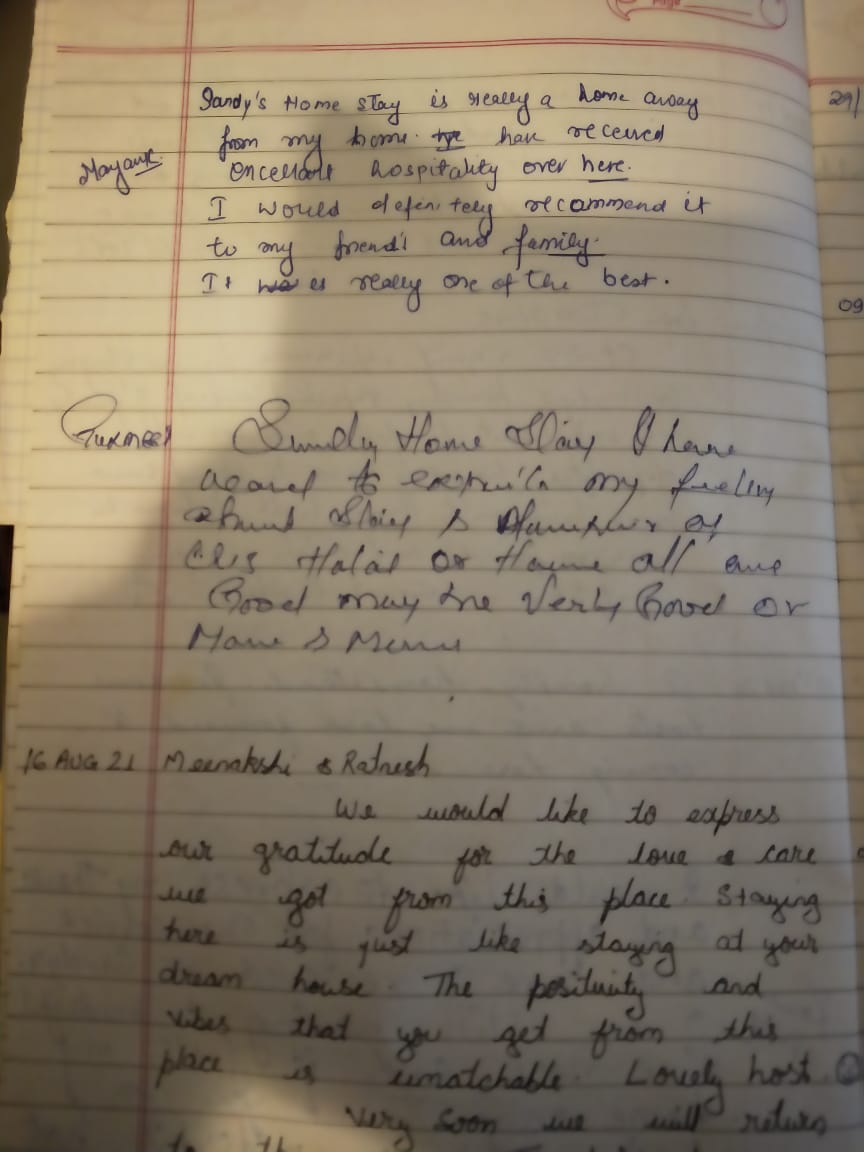 Page
29/
Sandy's Home stay is really a home away
from my home. have received
Mayank
Encellant hospitality over here.
I would definitely recommend it
to my friend's and family.
It is really one of the best.
09
Gurmeet
Home Stay I have
to my feeling
Stay &
or Home all are
Good may be Verly Good or
16 AUG 21 Meenakshi & Ratnesh
We would like to express
our gratitude for the love & care
we got from this place. Staying
here is just like staying at your
dream house. The positivity and
vibes that you get from this
place is unmatchable. Lovely host
Very soon we will return
to